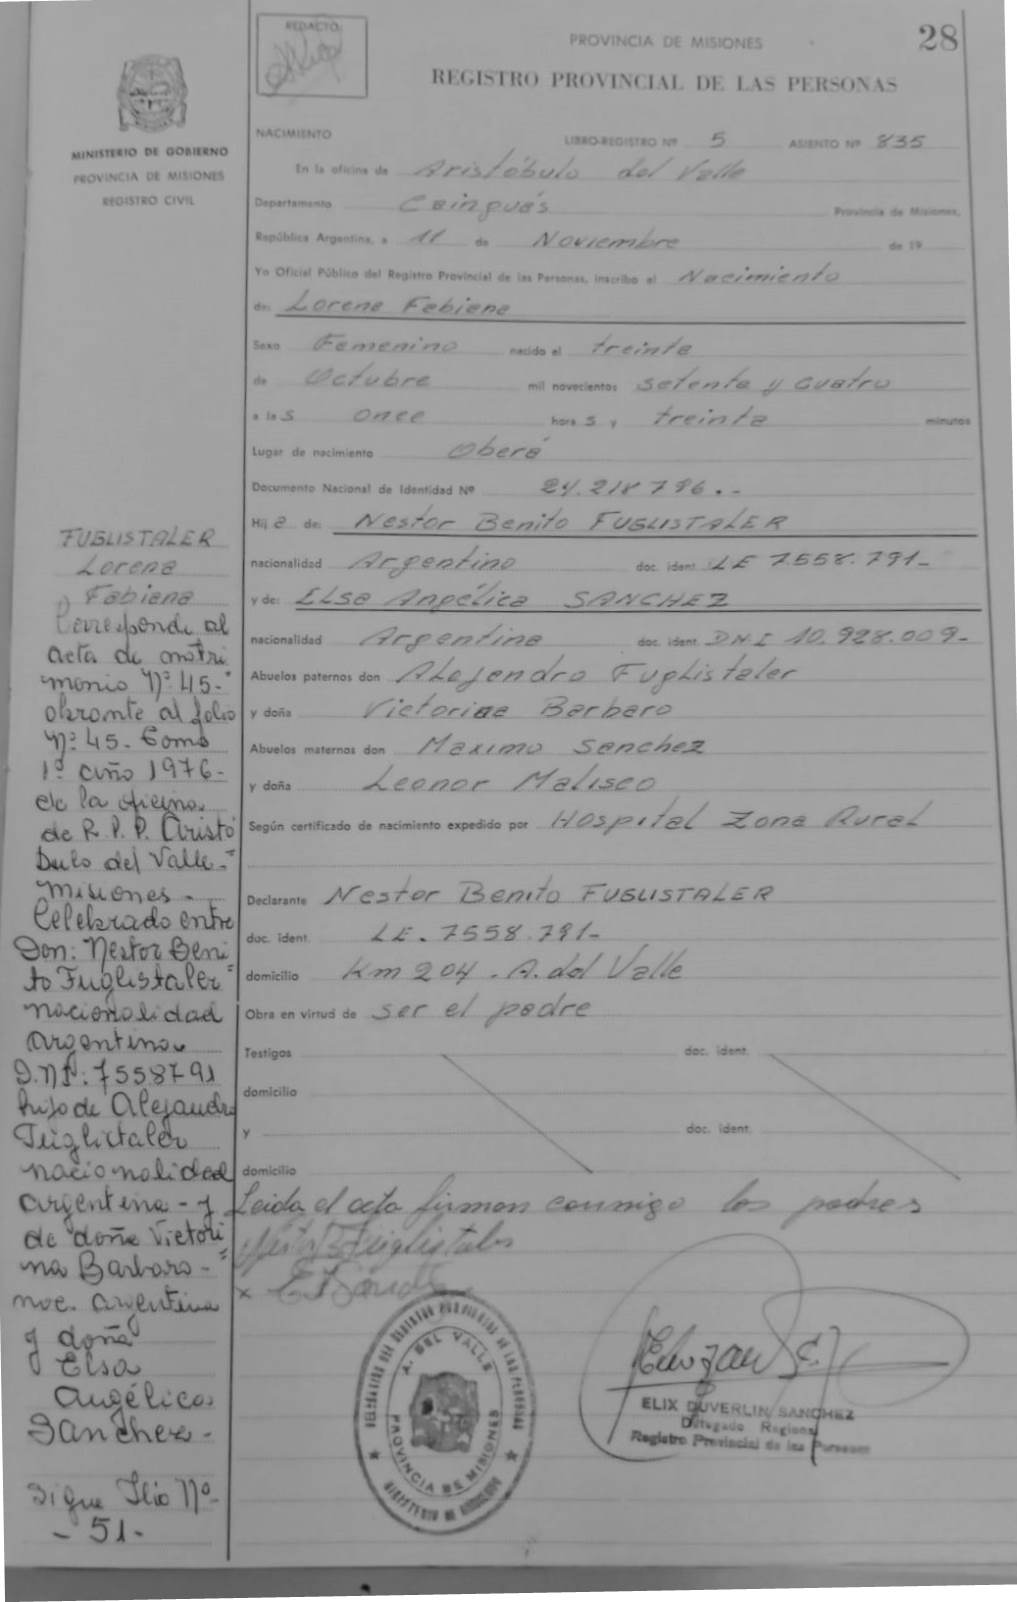 REDACTO
PROVINCIA DE MISIONES
28
REGISTRO PROVINCIAL DE LAS PERSONAS
MINISTERIO DE GOBIERNO
PROVINCIA DE MISIONES
REGISTRO CIVIL
NACIMIENTO
LIBRO-REGISTRO Nº 5 ASIENTO Nº 835
En la oficina de Aristóbulo del Valle
Departamento Cainguás Provincia de Misiones,
República Argentina, a 11 de Noviembre de 19
Yo Oficial Público del Registro Provincial de las Personas, inscribo el Nacimiento
de: Lorena Fabiana
Sexo Femenino nacido el treinta
de Octubre mil novecientos setenta y cuatro
a las once horas y treinta minutos
Lugar de nacimiento Oberá
Documento Nacional de Identidad Nº 24.218796.-
Hija de: Nestor Benito FUGLISTALER
nacionalidad Argentino doc. ident. LE 7.558.791-
y de: ELSa Angélica SANCHEZ
nacionalidad Argentina doc. ident. DNI 10.928.009-
Abuelos paternos don ALejandro Fuglistaler
y doña Victorina Barbaro
Abuelos maternos don Maximo Sanchez
y doña Leonor Malisco
Según certificado de nacimiento expedido por Hospital Zona Rural
Declarante Nestor Benito FUGLISTALER
doc. ident. LE. 7558.791-
domicilio Km 204. A. del Valle
Obra en virtud de ser el padre
Testigos doc. ident.
domicilio
y doc. ident.
domicilio
Leida el acta firman conmigo los padres
FUGLISTALER
Lorena
Fabiana
Corresponde al
acta de matri
monio Nº 45-
obrante al folio
Nº 45. Como
1º año 1976-
de la oficina
de R. P. P. Aristó
bulo del Valle-
misiones-
Celebrado entre
Don: Nestor Beni
to Fuglistaler
nacionalidad
argentino
D.NI: 7558791
hijo de Alejandro
Fuglistaler
nacionalidad
argentina - y
de doña Victori
na Barbaro-
nac. argentina
y doña
Elsa
Angélica
Sanchez-
Sigue folio Nº
- 51-
DELEGACION DEL REGISTRO PROVINCIAL DE LAS PERSONAS
A. DEL VALLE
PROVINCIA DE MISIONES
MINISTERIO DE GOBIERNO
ELIX DUVERLIN SANCHEZ
Delegado Regional
Registro Provincial de las Personas